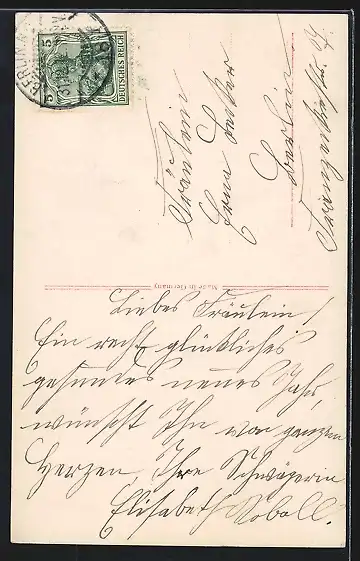 BERLIN
5
5
DEUTSCHES REICH
Fräulein
Erna
Berlin
Made in Germany
Liebes Fräulein!
Ein recht glückliches
gesundes neues Jahr,
wünscht Ihn von ganzem
Herzen, Ihre Schwägerin
Elisabeth